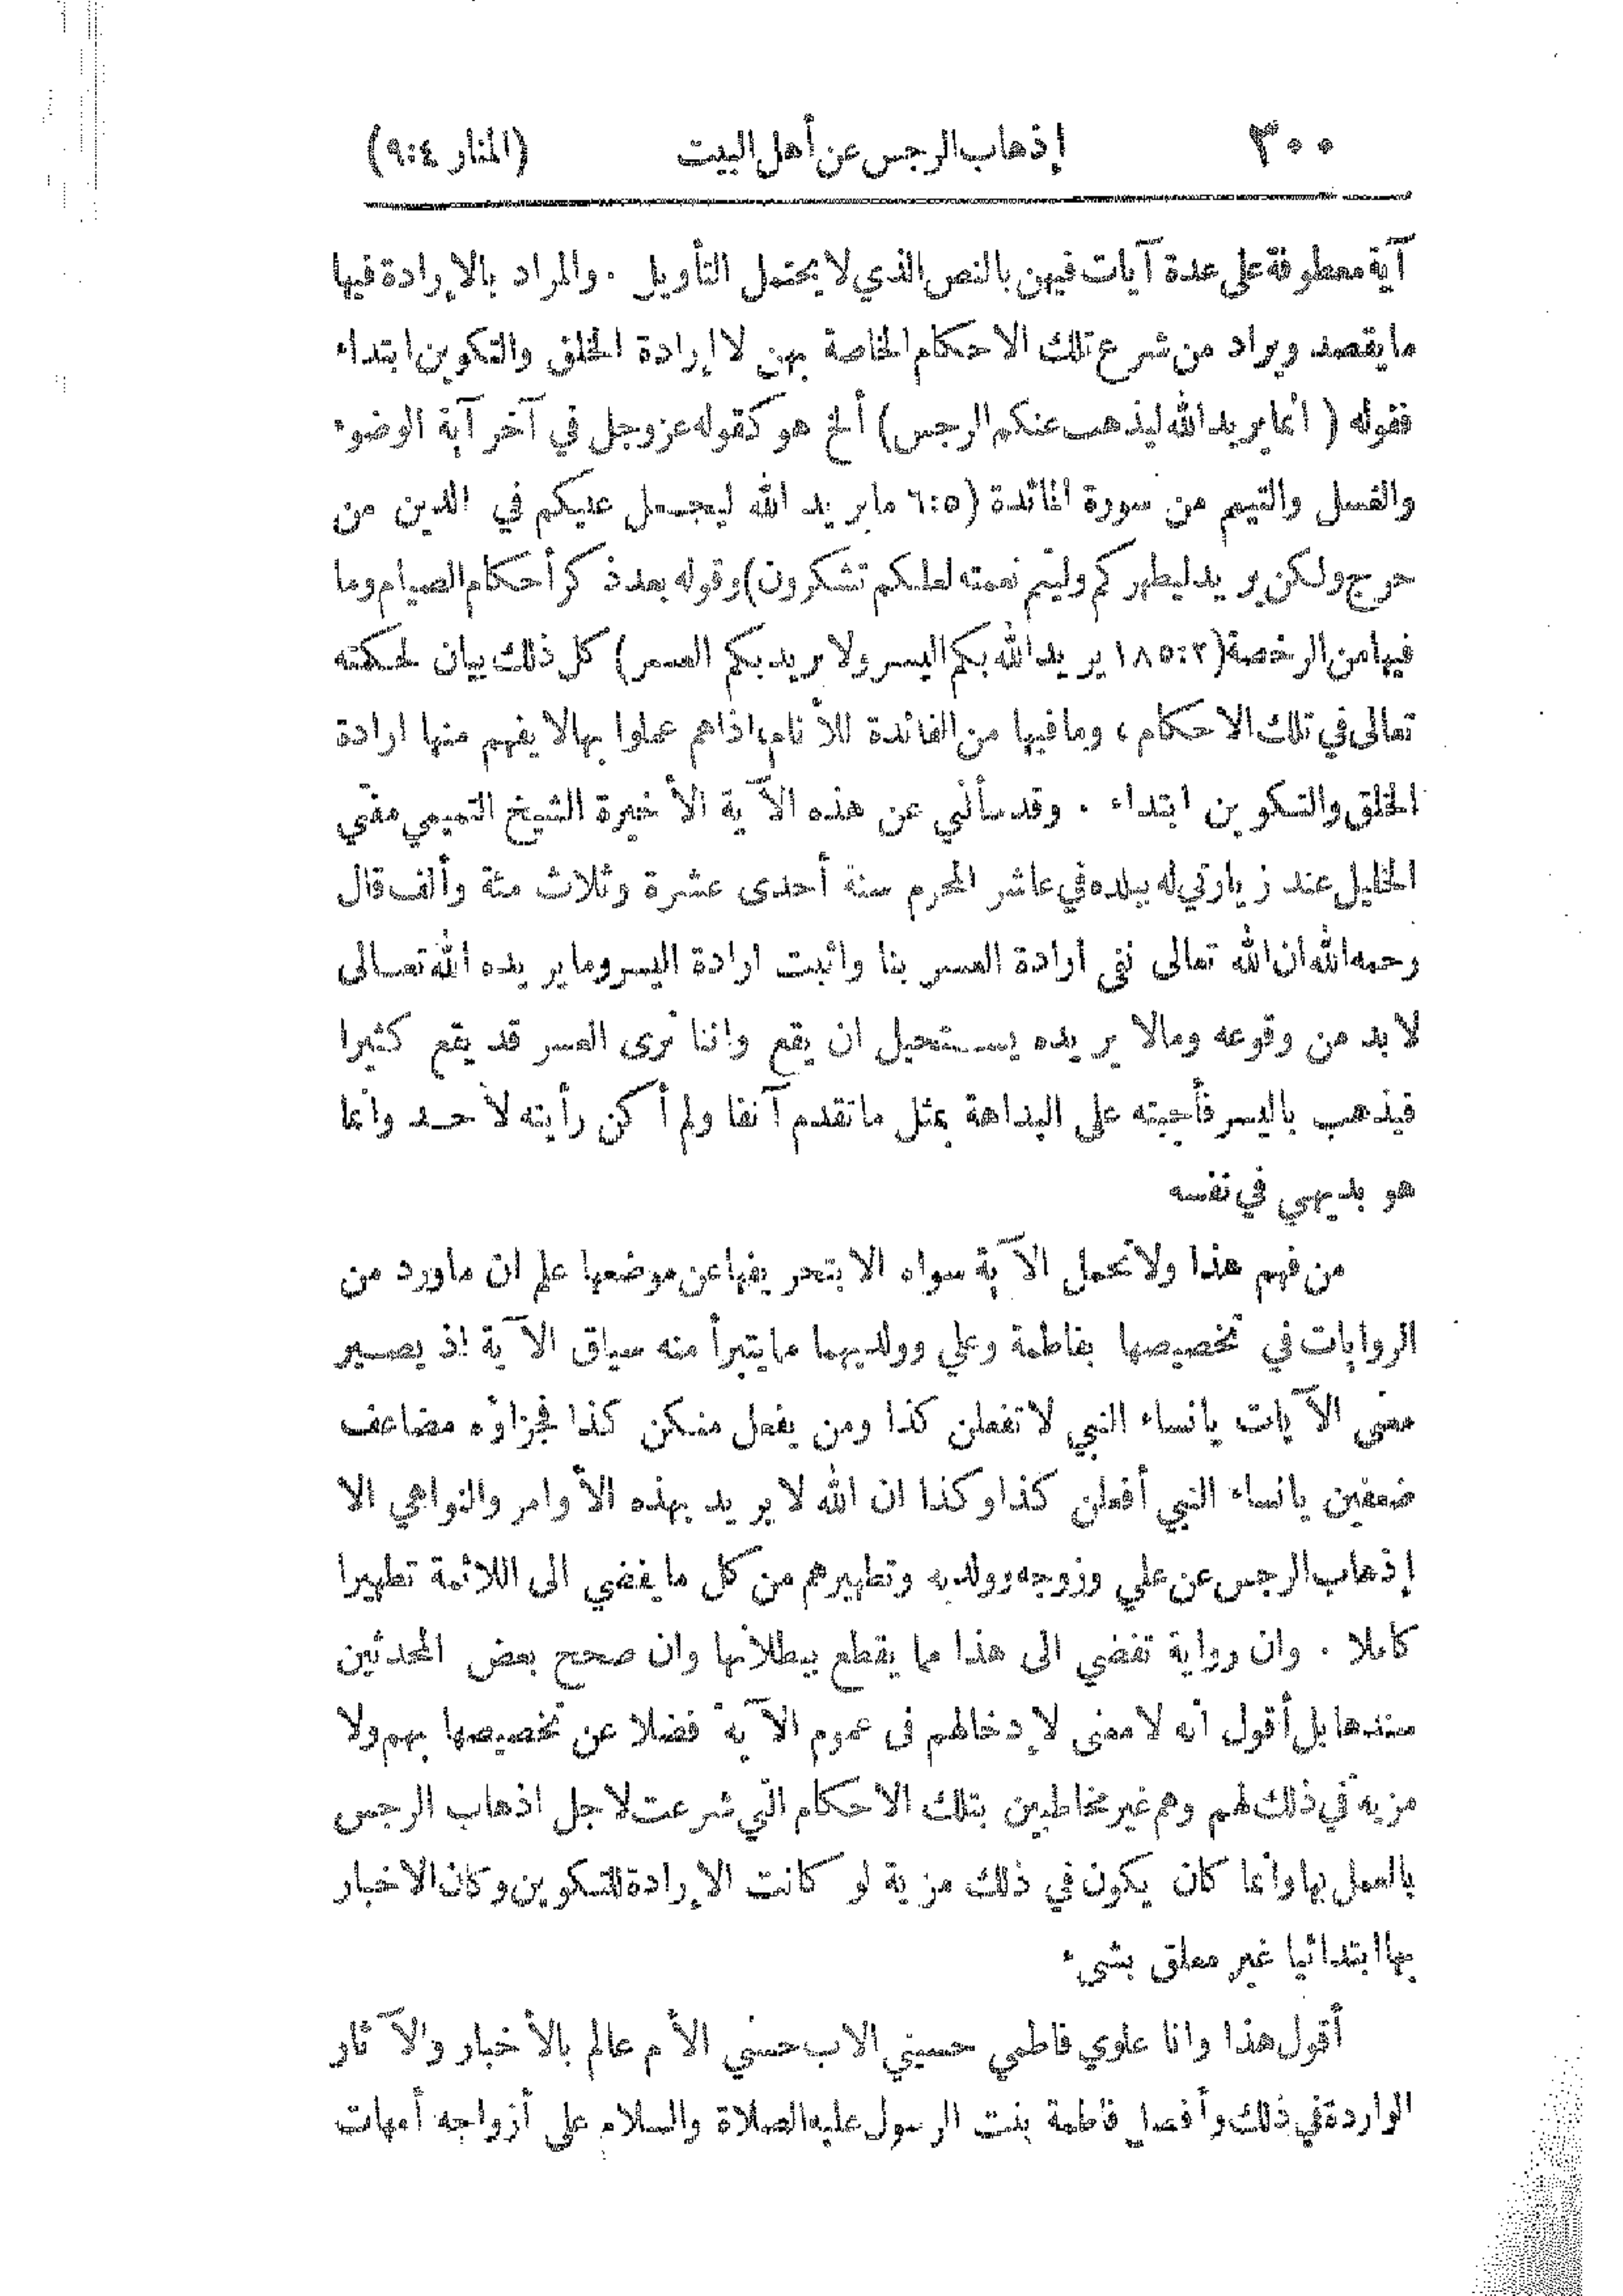 ٣٠٠ إذهاب الرجس عن أهل البيت (المنار ٩:٤)
آية معطوفة على عدة آيات فيهن بالنص الذي لا يحتمل التأويل . والمراد بالإرادة فيها
ما يقصد ويراد من شرع تلك الاحكام الخاصة بهن لا إرادة الخلق والتكوين ابتداء
فقوله ( انما يريد الله ليذهب عنكم الرجس ) ألخ هو كقوله عز وجل في آخر آية الوضوء
والغسل والتيمم من سورة المائدة (٦:٥ ما يريد الله ليجعل عليكم في الدين من
حرج ولكن يريد ليطهركم وليتم نعمته لعلكم تشكرون) وقوله بعد ذكر أحكام الصيام وما
فيها من الرخصة (١٨٥:٢ يريد الله بكم اليسر ولا يريد بكم العسر ) كل ذلك بيان لحكمته
تعالى في تلك الاحكام ، وما فيها من الفائدة للأنام، اذا هم عملوا بها لا يفهم منها ارادة
الخلق والتكوين ابتداء . وقد سألني عن هذه الآية الأخيرة الشيخ التميمي مفتي
الخليل عند زيارتي له ببلده في عاشر المحرم سنة أحدى عشرة وثلاث مئة وألف قال
رحمه الله ان الله تعالى نفى ارادة العسر بنا واثبت ارادة اليسر وما يريده الله تعالى
لا بد من وقوعه وما لا يريده يستحيل ان يقع واننا نرى العسر قد يقع كثيرا
فيذهب باليسر فأجبته على البداهة بمثل ما تقدم آنفا ولم أكن رأيته لأحد وانما
هو بديهي في نفسه
من فهم هذا ولا تحمل الآية سواه الا بتحريفها عن موضعها علم ان ما ورد من
الروايات في تخصيصها بفاطمة وعلي وولديهما ما يتبرأ منه سياق الآية إذ يصير
معنى الآيات يا نساء النبي لا تفعلن كذا ومن يفعل منكن كذا فجزاؤه مضاعف
ضعفين يا نساء النبي أفعلن كذا وكذا ان الله لا يريد بهذه الأوامر والنواهي الا
إذهاب الرجس عن علي وزوجه وولديه وتطهيرهم من كل ما يفضي الى اللائمة تطهيرا
كاملا . وان رواية تفضي الى هذا مما يقطع ببطلانها وان صحح بعض المحدثين
سندها بل أقول انه لا معنى لإدخالهم فى عموم الآية فضلا عن تخصيصها بهم ولا
مزية في ذلك لهم وهم غير مخاطبين بتلك الاحكام التي شرعت لاجل اذهاب الرجس
بالعمل بها وانما كان يكون في ذلك مزية لو كانت الإرادة للتكوين وكان الاخبار
بها ابتدائيا غير معلق بشيء
أقول هذا وانا علوي فاطمي حسيني الاب حسني الأم عالم بالأخبار والآثار
الواردة في ذلك وأفضل فاطمة بنت الرسول عليه الصلاة والسلام على أزواجه أمهات